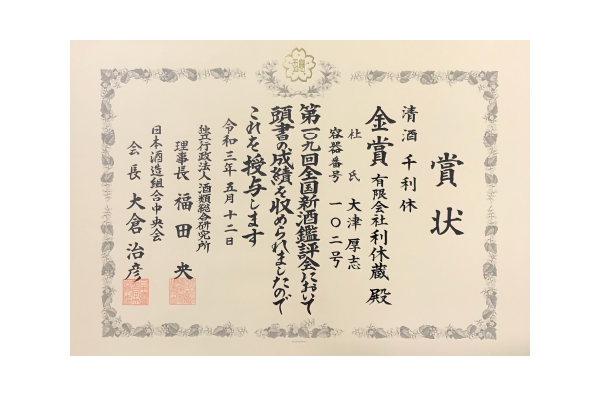 賞状
清酒 千利休
金賞 有限会社利休蔵 殿
社氏 大津厚志
容器番号 一〇二号
第一〇九回全国新酒鑑評会において
頭書の成績を収められましたので
これを授与します
令和三年五月十二日
独立行政法人 酒類総合研究所
理事長 福田 央
日本酒造組合中央会
会長 大倉治彦